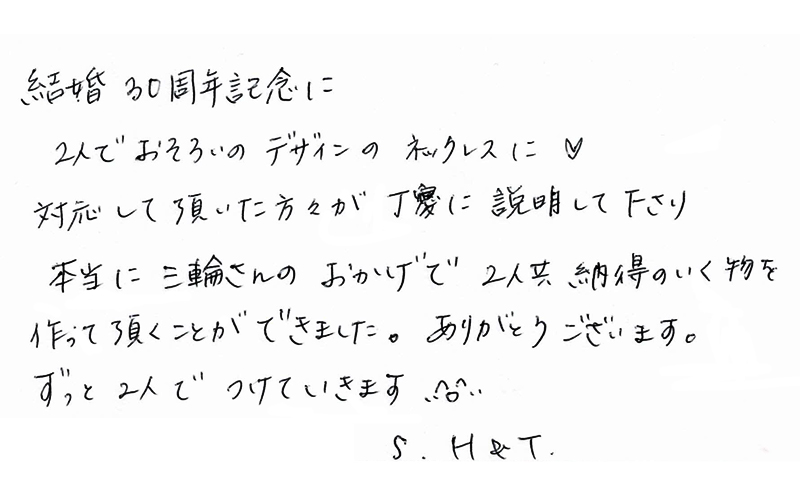 結婚30周年記念に
2人でおそろいのデザインのネックレスに♡
対応して頂いた方々が丁寧に説明して下さり
本当に三輪さんのおかげで2人共納得のいく物を
作って頂くことができました。ありがとうございます。
ずっと2人でつけていきます
S. H&T.